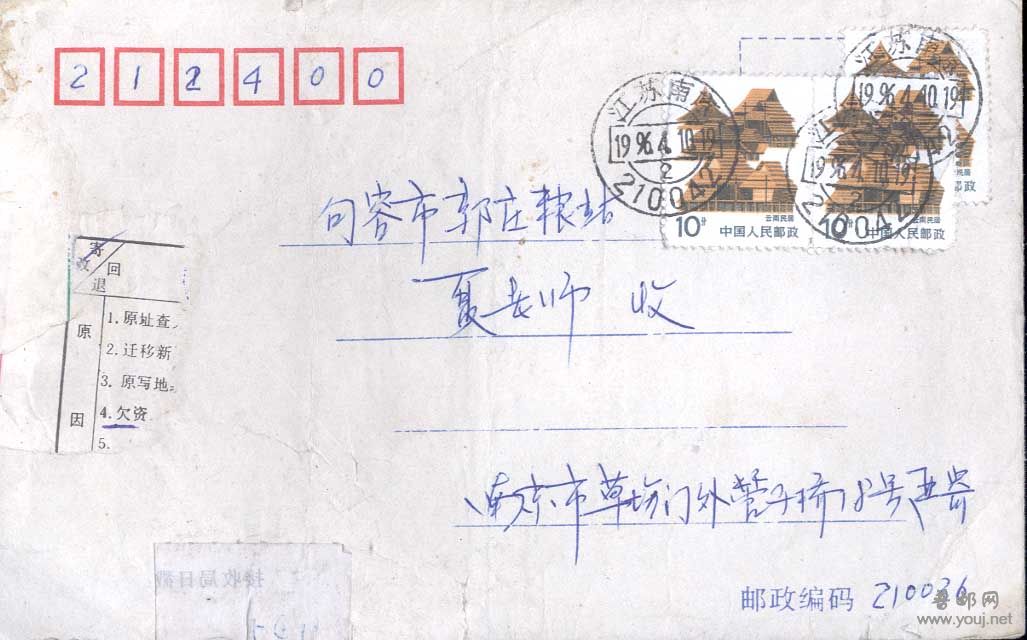 212400
江苏南京
1996.4.10.19
2
210042
江苏南
1996.4.10.19
江
1996.4.10.19
2
云南民居
10分 中国人民邮政
云南民居
10分 中国人民邮政
民居
邮政
句容市郭庄粮站
夏老师 收
寄
收
回
退
原
因
1.原址查
2.迁移新
3.原写地
4.欠资
5.
南京市草场门外营子桥18号
接收局日戳
邮政编码 210036
鲁邮网
www.youj.net